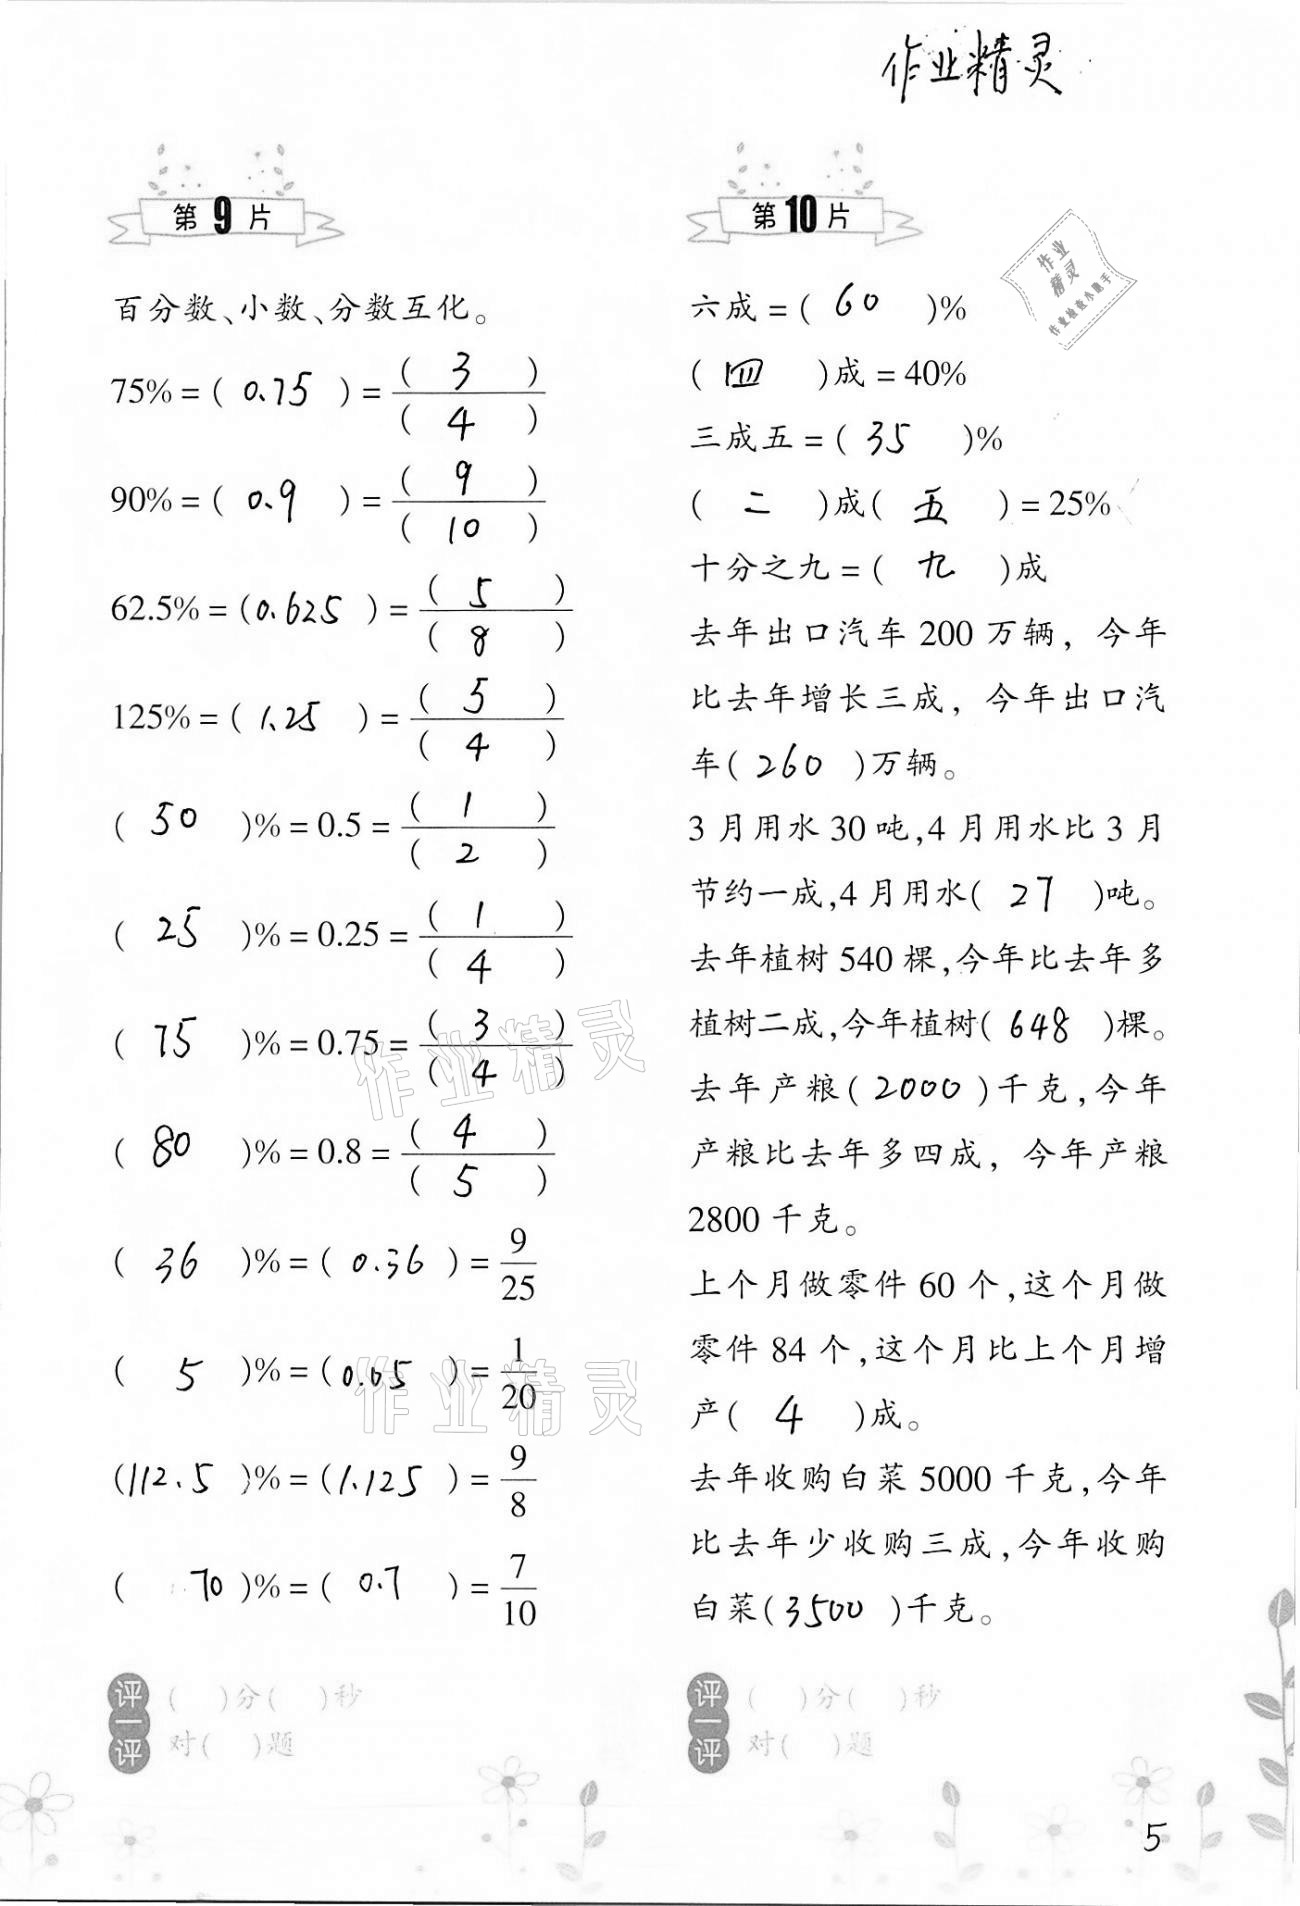 作业精灵
第9片
百分数、小数、分数互化。
75% = ( 0.75 ) = ( 3 )/( 4 )
90% = ( 0.9 ) = ( 9 )/( 10 )
62.5% = ( 0.625 ) = ( 5 )/( 8 )
125% = ( 1.25 ) = ( 5 )/( 4 )
( 50 )% = 0.5 = ( 1 )/( 2 )
( 25 )% = 0.25 = ( 1 )/( 4 )
( 75 )% = 0.75 = ( 3 )/( 4 )
( 80 )% = 0.8 = ( 4 )/( 5 )
( 36 )% = ( 0.36 ) = 9/25
( 5 )% = ( 0.05 ) = 1/20
( 112.5 )% = ( 1.125 ) = 9/8
( 70 )% = ( 0.7 ) = 7/10
评一评
( )分( )秒
对( )题
第10片
作业
精灵
作业检查小助手
六成 = ( 60 )%
( 四 )成 = 40%
三成五 = ( 35 )%
( 二 )成( 五 ) = 25%
十分之九 = ( 九 )成
去年出口汽车 200 万辆，今年
比去年增长三成，今年出口汽
车( 260 )万辆。
3 月用水 30 吨,4 月用水比 3 月
节约一成,4 月用水( 27 )吨。
去年植树 540 棵,今年比去年多
植树二成,今年植树( 648 )棵。
去年产粮( 2000 )千克,今年
产粮比去年多四成，今年产粮
2800 千克。
上个月做零件 60 个,这个月做
零件 84 个,这个月比上个月增
产( 4 )成。
去年收购白菜 5000 千克,今年
比去年少收购三成,今年收购
白菜( 3500 )千克。
评一评
( )分( )秒
对( )题
作业精灵
作业精灵
5